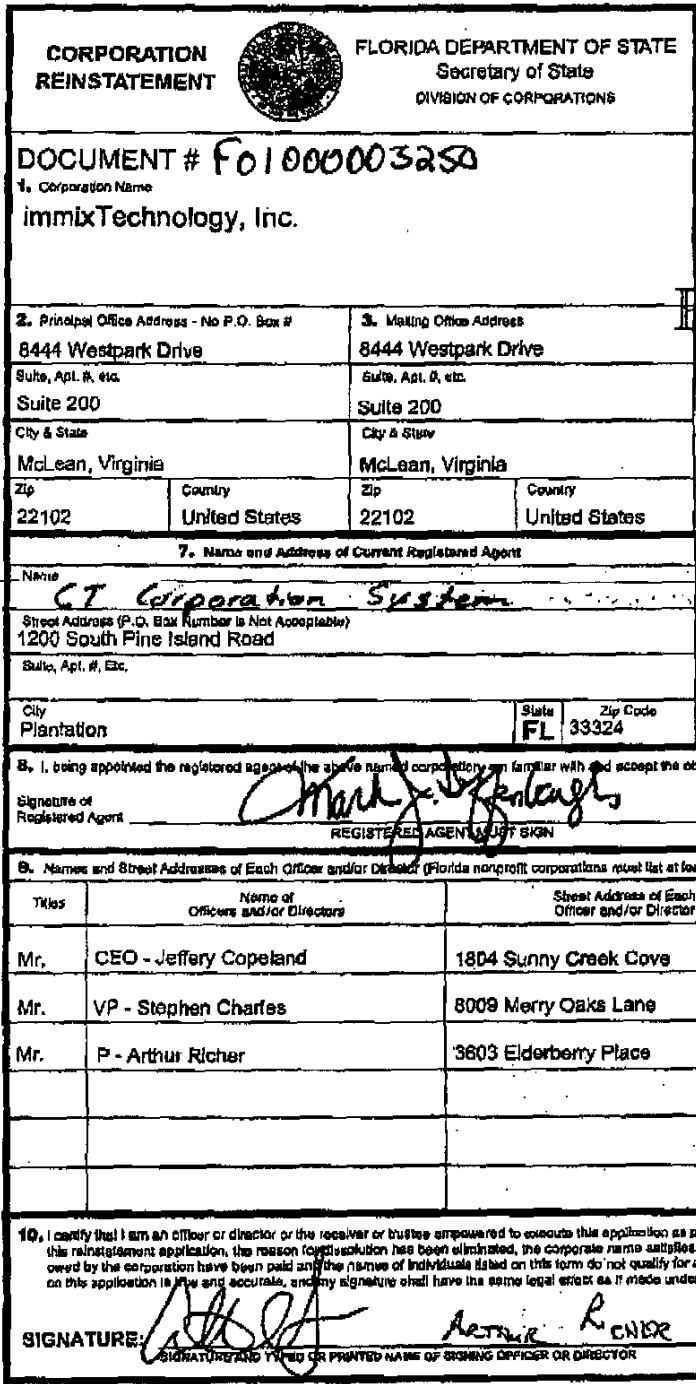 CORPORATION
REINSTATEMENT
FLORIDA DEPARTMENT OF STATE
Secretary of State
DIVISION OF CORPORATIONS
DOCUMENT # F01000003250
1. Corporation Name
immixTechnology, Inc.
2. Principal Office Address - No P.O. Box #
3. Mailing Office Address
8444 Westpark Drive
8444 Westpark Drive
Suite, Apt. #, etc.
Suite, Apt. #, etc.
Suite 200
Suite 200
City & State
City & State
McLean, Virginia
McLean, Virginia
Zip
Country
Zip
Country
22102
United States
22102
United States
7. Name and Address of Current Registered Agent
Name
CT Corporation System
Street Address (P.O. Box Number is Not Acceptable)
1200 South Pine Island Road
Suite, Apt. #, Etc.
City
State
Zip Code
Plantation
FL
33324
8. I, being appointed the registered agent of the above named corporation, am familiar with and accept the ob
Signature of
Registered Agent
Mark
REGISTERED AGENT MUST SIGN
9. Names and Street Addresses of Each Officer and/or Director (Florida nonprofit corporations must list at lea
Titles
Name of
Officers and/or Directors
Street Address of Each
Officer and/or Director
Mr.
CEO - Jeffery Copeland
1804 Sunny Creek Cove
Mr.
VP - Stephen Charles
8009 Merry Oaks Lane
Mr.
P - Arthur Richer
3603 Elderberry Place
10. I certify that I am an officer or director or the receiver or trustee empowered to execute this application as p
this reinstatement application, the reason for dissolution has been eliminated, the corporate name satisfies
owed by the corporation have been paid and the names of individuals listed on this form do not qualify for a
on this application is true and accurate, and my signature shall have the same legal effect as if made under
SIGNATURE:
ARTHUR
SIGNATURE AND TYPED OR PRINTED NAME OF SIGNING OFFICER OR DIRECTOR